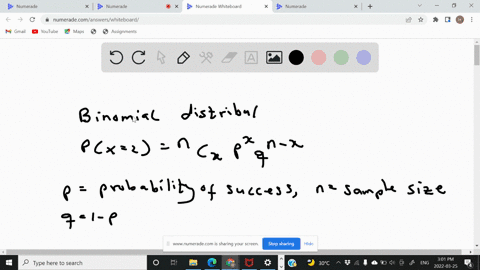 Numerade
Numerade
Numerade Whiteboard
Numerade
numerade.com/answers/whiteboard/
Gmail
YouTube
Maps
Assignments
Binomial distribut
P(x=2) = n C x p^x q^n-x
p = probability of success, n= sample size
q=1-p
www.numerade.com is sharing your screen.
Stop sharing
Hide
Type here to search
30°C
ENG
3:01 PM
2022-03-25